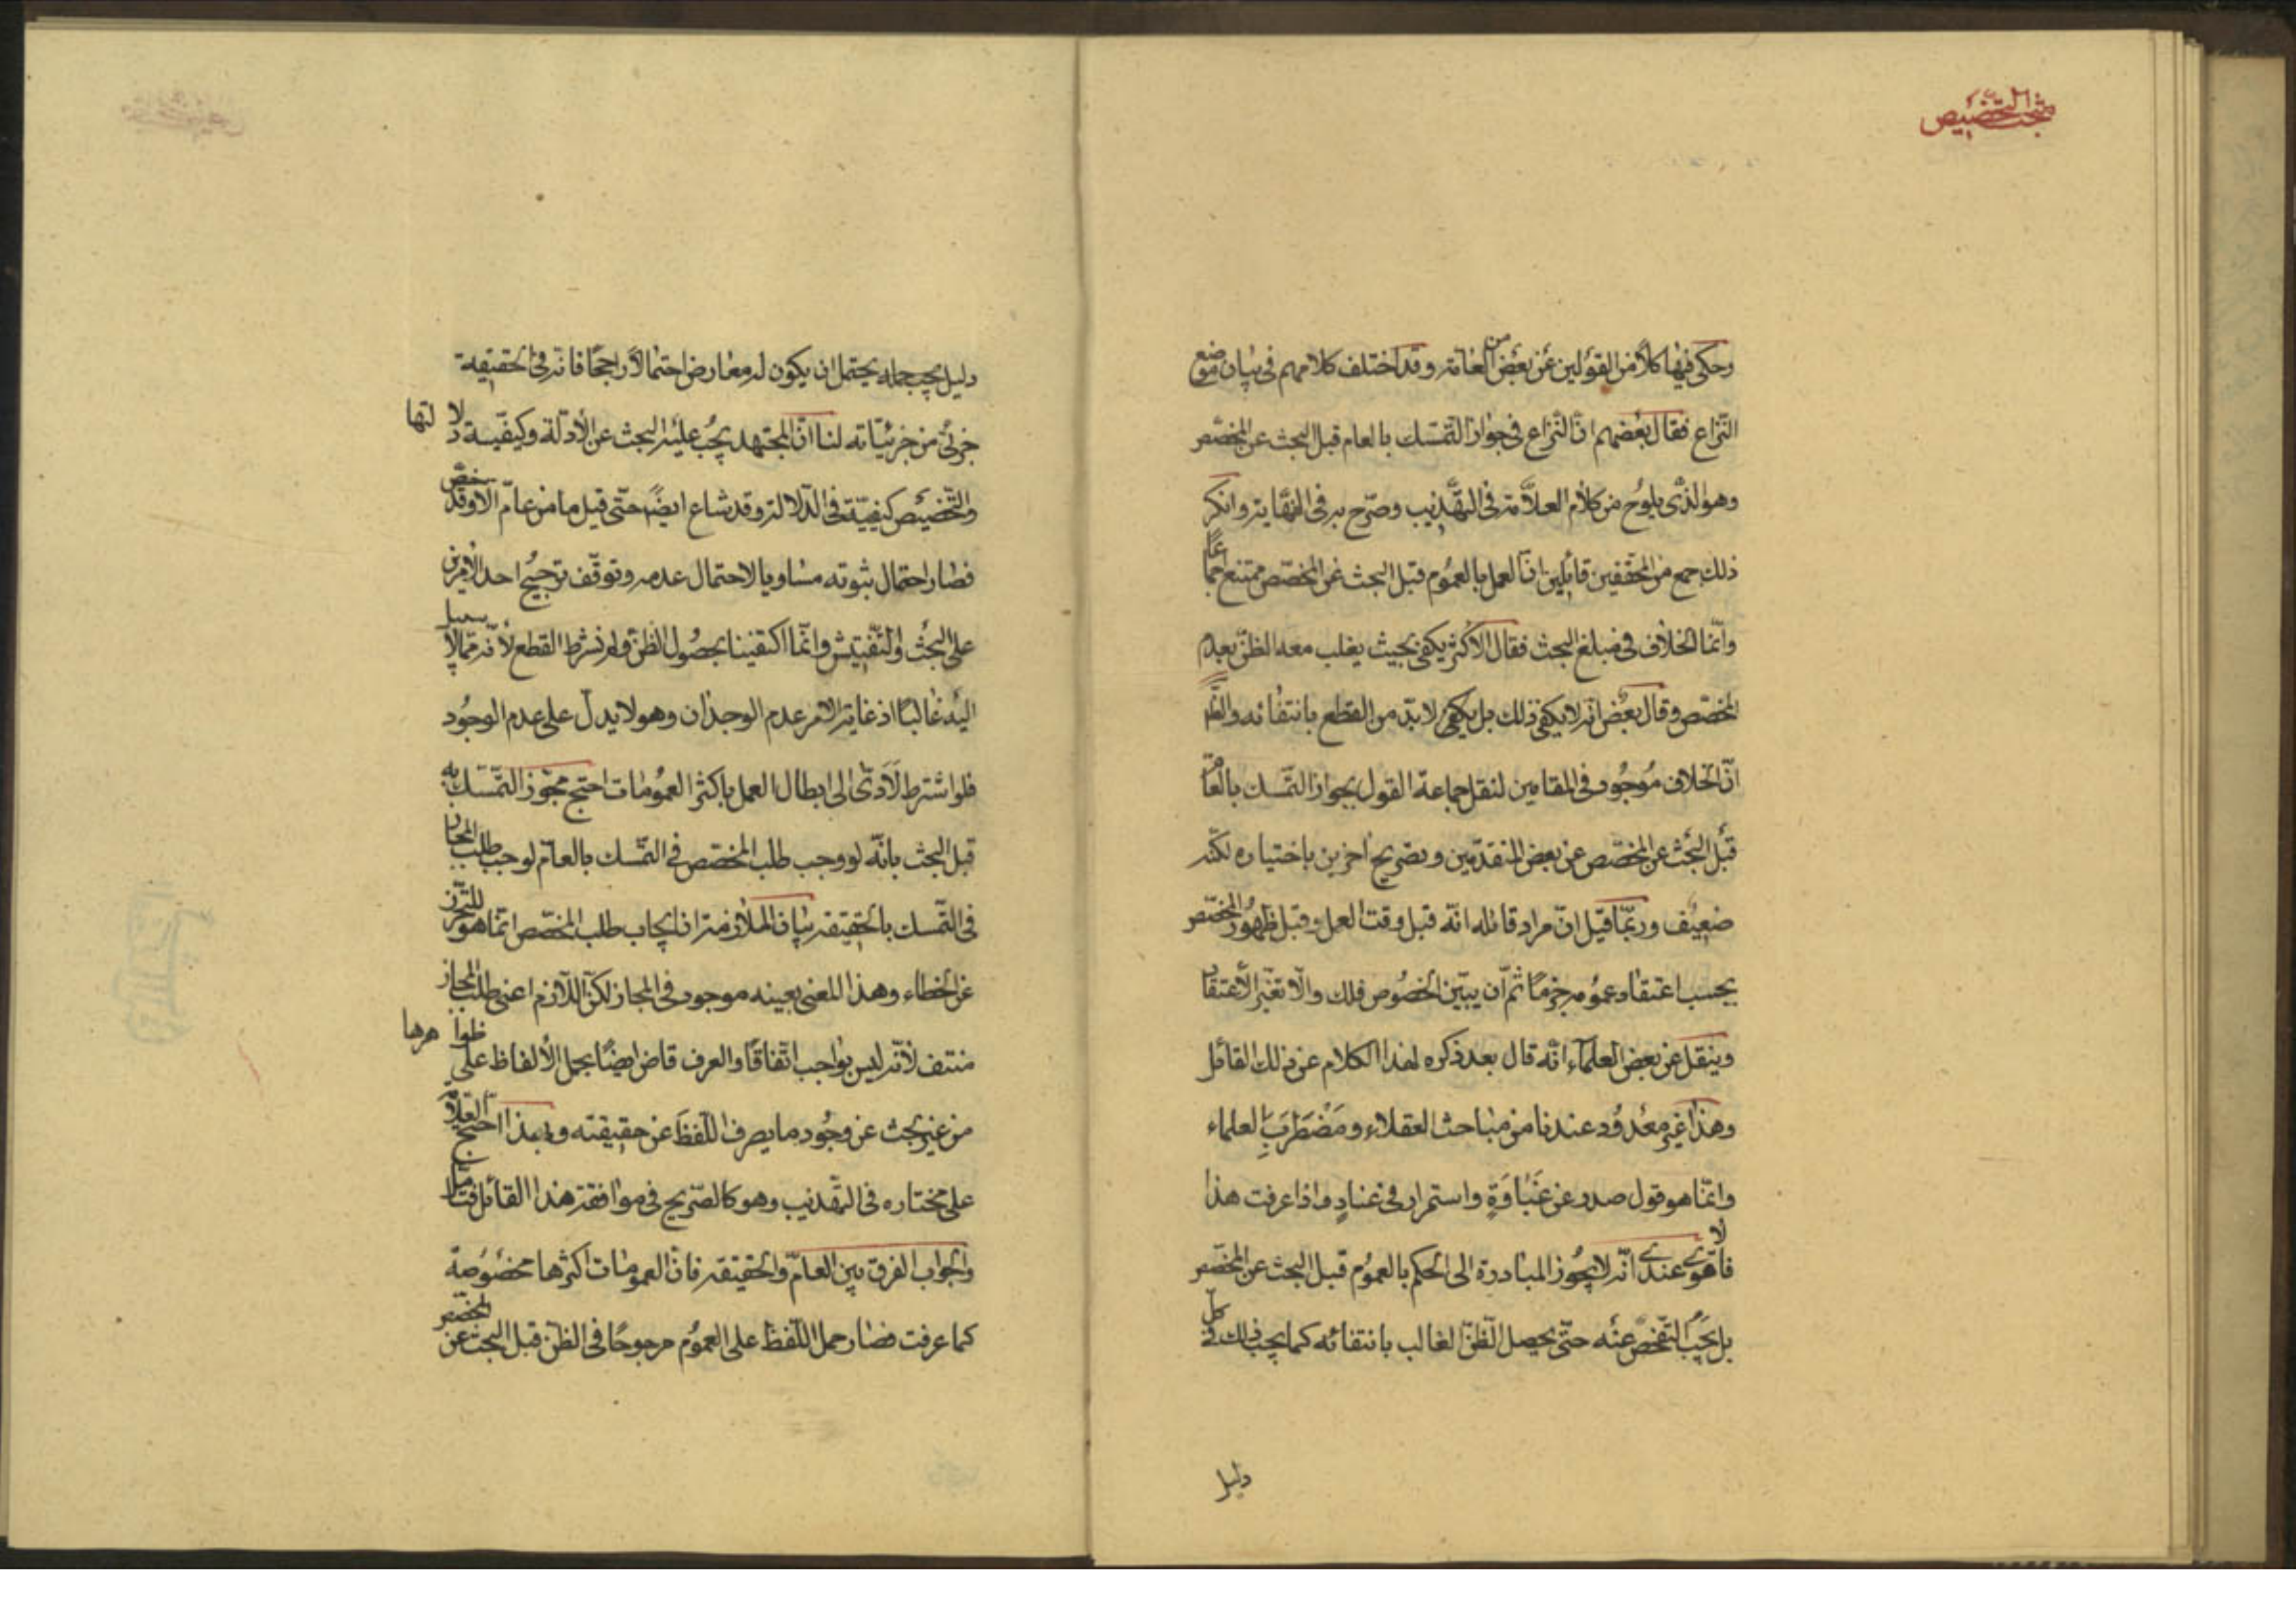 مبحث التخصيص
وحكى فيها كلًا من القولين عن بعض من العامة وقد اختلف كلامهم في بيان موضع
النّزاع فقال بعضهم انّ النّزاع في جواز التّمسّك بالعام قبل البحث عن المخصّص
وهو الذي يلوح من كلام العلّامة في التهذيب وصرّح به في النهاية وانكر
ذلك جمع من المحققين قائلين انّ العمل بالعموم قبل البحث عن المخصّص ممتنع اجماعًا
وانّما الخلاف في مبلغ البحث فقال الاكثر يكفي بحيث يغلب معه الظنّ بعدم
المخصّص وقال بعض انه لا يكفي ذلك بل يكفي لا بدّ من القطع بانتفائه والظّ
انّ الخلاف موجود في المقامين لنقل جماعة القول بجواز التّمسك بالعامّ
قبل البحث عن المخصّص عن بعض المتقدّمين وتصريح آخرين باختياره لكنّه
ضعيف وربّما قيل انّ مراد قائله انّه قبل وقت العمل وقبل ظهور المخصّص
يجب اعتقاد عمومه جزمًا ثمّ ان يبيّن الخصوص فذلك والّا تغيّر الاعتقاد
وينقل عن بعض العلماء انّه قال بعد ذكره لهذا الكلام عن ذلك القائل
وهذا غير معدود عندنا من مباحث العقلاء ومضطرب العلماء
وانّما هو قول صدر عن غباوة واستمرار في عناد واذا عرفت هذا
فالاقوى عندي انّه لا يجوز المبادرة الى الحكم بالعموم قبل البحث عن المخصّص
بل يجب التّفحّص عنه حتّى يحصل الظّنّ الغالب بانتفائه كما يجب ذلك في كلّ
دليل
دليل يجب حمله يحتمل ان يكون له معارض احتمالًا راجحًا فانّه في الحقيقة
جزئيّ من جزئيّاته لنا انّ المجتهد يجب عليه البحث عن الادلّة وكيفيّة دلالتها
والتّخصيص كيفيّة في الدّلالة وقد شاع ايضًا حتّى قيل ما من عامّ الا وقد خصّ
فصار احتمال ثبوته مساويا لاحتمال عدمه وتوقّف ترجيح احد الامرين
على البحث والتّفتيش وانّما اكتفينا بحصول الظنّ ولم نشرط القطع لأنّه ممّا لا سبيل
اليه غالبًا اذ غاية الامر عدم الوجدان وهو لا يدلّ على عدم الوجود
فلو اشترط لَادّى الى ابطال العمل باكثر العمومات احتج مجوّز التّمسّك به
قبل البحث بانّه لو وجب طلب المخصّص في التّمسّك بالعامّ لوجب طلب المجاز
في التّمسك بالحقيقة بيان الملازمة ان ايجاب طلب المخصّص انّما هو للتحرّز
عن الخطاء وهذا المعنى بعينه موجود في المجاز لكنّ اللّازم اعني طلب المجاز
منتف لأنّه ليس بواجب اتّفاقًا والعرف قاض ايضًا بحمل الألفاظ على ظواهرها
من غير بحث عن وجود ما يصرف اللّفظَ عن حقيقته وبهذا احتج العلّامة
على مختاره في التّهذيب وهو كالصّريح في موافقة هذا القائل فتأمّل
والجواب الفرق بين العامّ والحقيقة فانّ العمومات اكثرها مخصوصة
كما عرفت فصار حمل اللّفظ على العموم مرجوحًا في الظن قبل البحث عن المخصّص